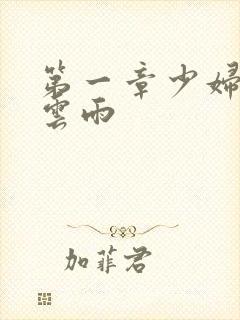 第一章少婦
雲雨
加菲君